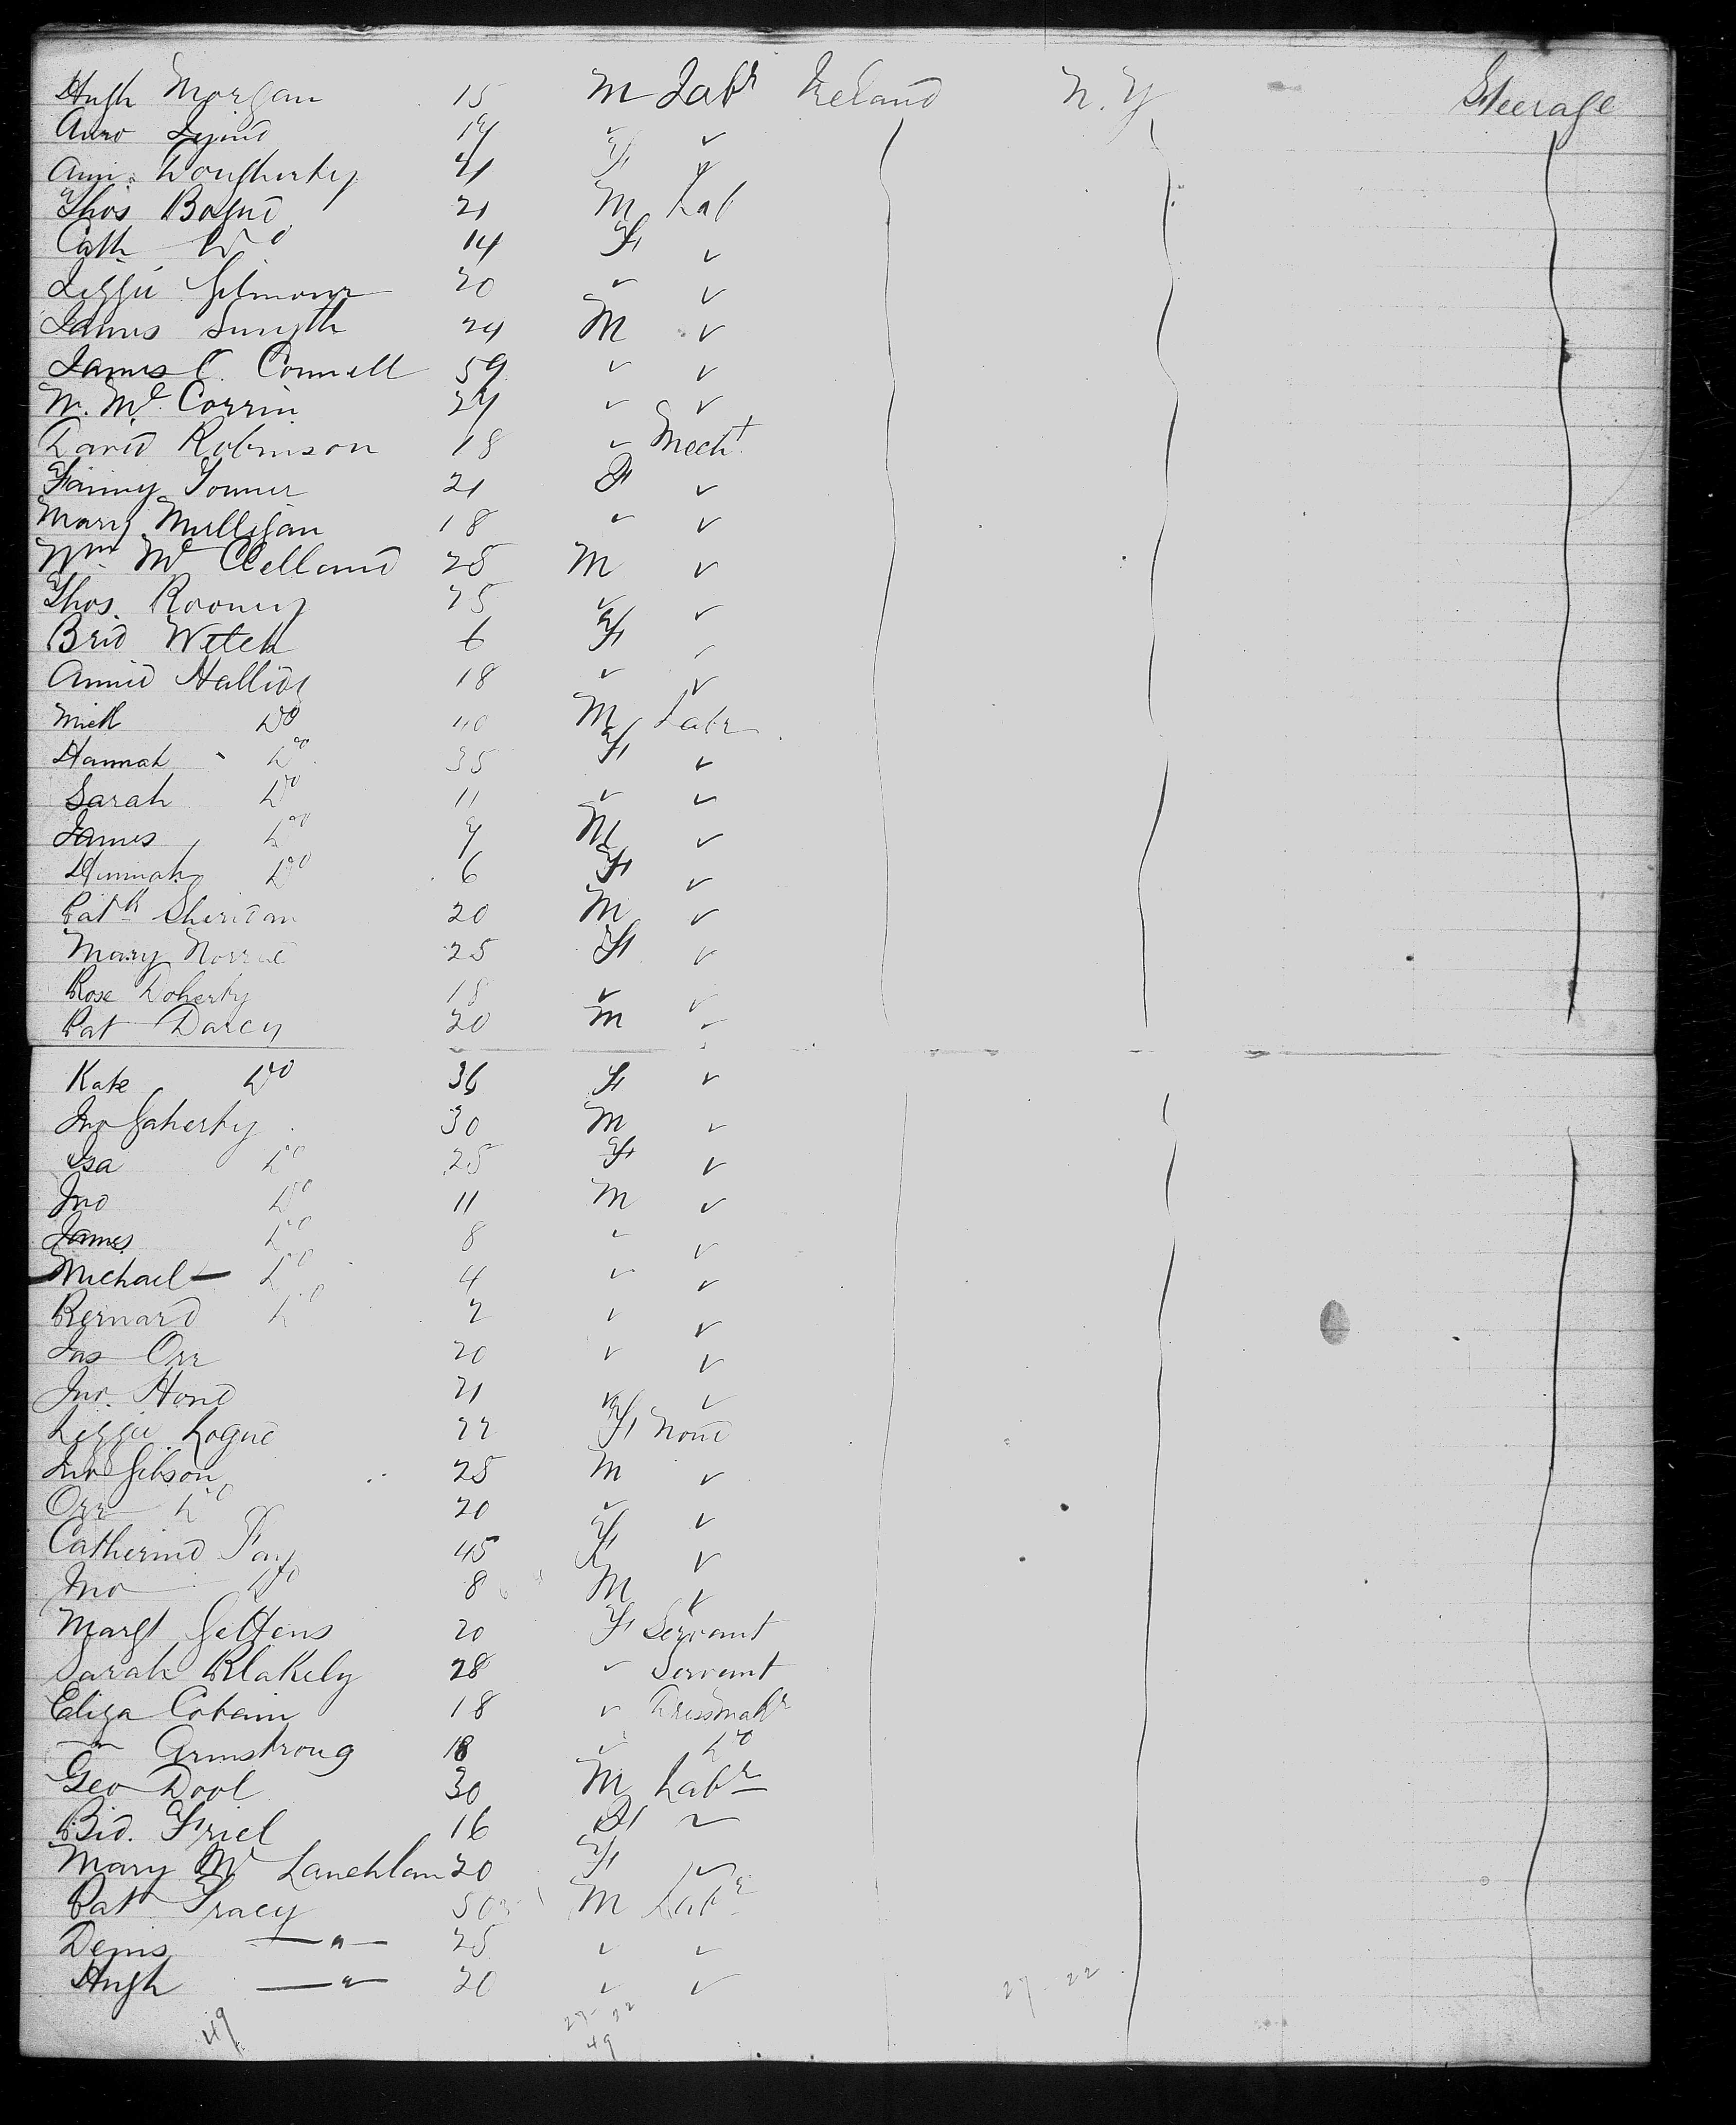 Hugh Morgan 15 M Labr Ireland N.Y Steerage
19 ✓ ✓
Ann Dougherty 21 F ✓
Thos Bogue 21 M Lab
Cath Do 14 F ✓
Lizzie Gilmour 20 ✓ ✓
James Smyth 24 M ✓
James O. Connell 59 ✓ ✓
W. Mc. Corrin 24 ✓ ✓
David Robinson 18 ✓ Mecht
Fanny Tonner 21 F ✓
Mary Mulligan 18 ✓ ✓
Wm Mc Clelland 25 M ✓
Thos. Rooney 25 ✓ ✓
Brid Welch 6 F ✓
Annie Halliday 18 ✓ ✓
Mick Do 40 M Labr
Hannah Do 35 F ✓
Sarah Do 11 ✓ ✓
James Do 7 M ✓
Hannah Do 6 F ✓
Patk Sheridan 20 M ✓
Mary 25 F ✓
Rose Doherty 18 ✓ ✓
Pat Darcy 20 M ✓
Kate Do 36 F ✓
Jno Gaherty 30 M ✓
Isa Do 25 F ✓
Jno Do 11 M ✓
James Do 8 ✓ ✓
Michael Do 4 ✓ ✓
Bernard Do 2 ✓ ✓
Jas Orr 20 ✓ ✓
Jno. Hone 21 ✓ ✓
Lizzie Logue 22 F None
Jno Gibson 25 M ✓
Orr Do 20 ✓ ✓
Catherine Fay 45 F ✓
Jno Do 8 M ✓
Margt Gettens 20 F Servant
Sarah Blakely 28 ✓ Servant
Eliza Cobain 18 ✓ Dressmakr
— " Armstrong 18 ✓ Do
Geo Dool 30 M Labr
Bid. Friel 16 F ✓
Mary Mc Lanchlan 20 F ✓
Pat Tracy 50 M Labr
Denis — " — 25 ✓ ✓
Hugh — " — 20 ✓ ✓
49 27 - 22 27 - 22
49